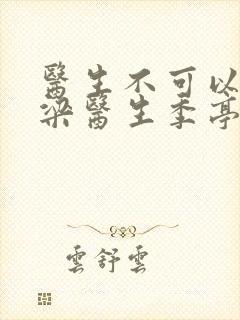 醫生不可以
梁醫生季亭
雲舒雲